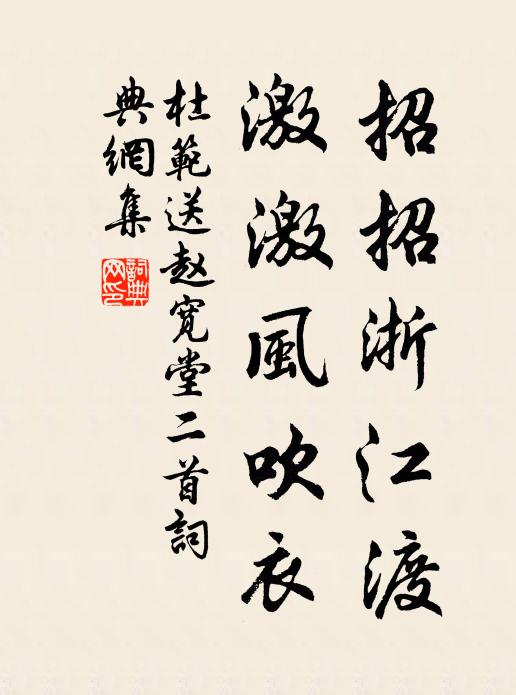 招招浙江渡
激激風吹衣
杜範送赵寬堂二首詞
典網集
詞典
网印